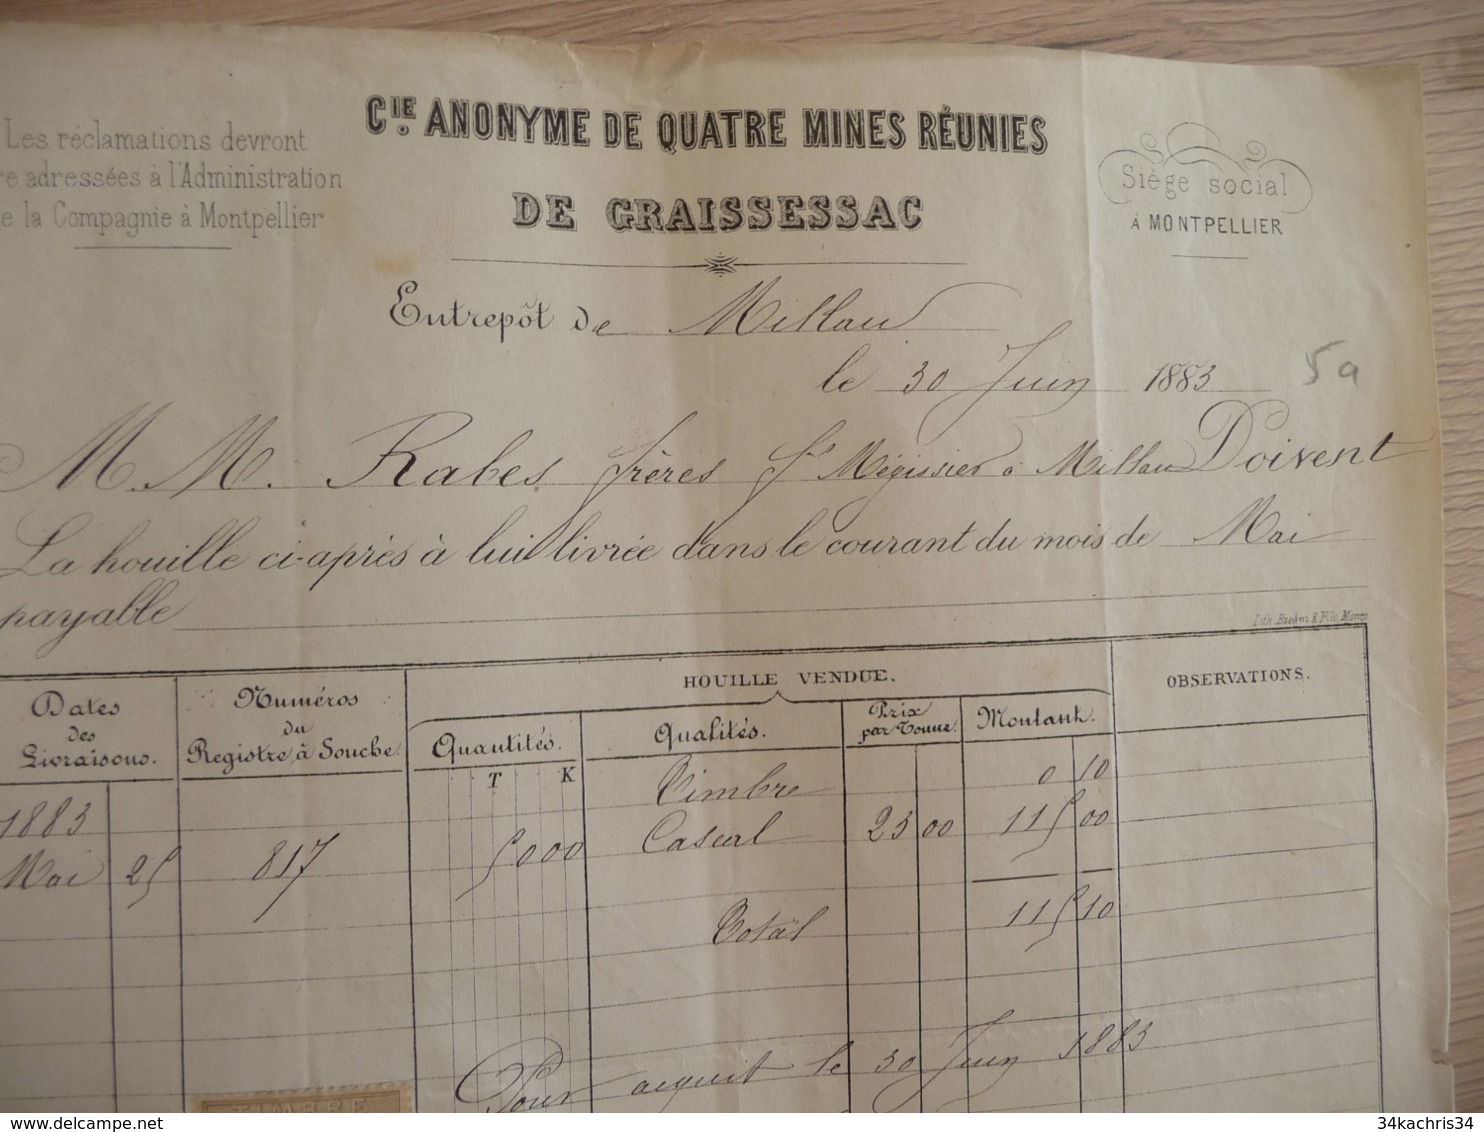 Les réclamations devront
re adressées à l'Administration
e la Compagnie à Montpellier
CIE. ANONYME DE QUATRE MINES RÉUNIES
DE GRAISSESSAC
Siège social
À MONTPELLIER
Entrepôt de Millau
le 30 Juin 1883
5a
M.M. Rabes frères Mégissier à Millau Doivent
La houille ci-après à lui livrée dans le courant du mois de Mai
payable
Lith. Boehm & Fils, Montp
Dates des Livraisons.
Numéros du Registre à Souche.
HOUILLE VENDUE.
OBSERVATIONS.
Quantités.
Qualités.
Prix par Tonne.
Montant.
T K
Timbre 0 10
1883
Mai 25 817 5000 Cascal 23 00 115 00
Total 115 10
Pour acquit le 30 Juin 1883
TIMBRE
delcampe.net
34kachris34